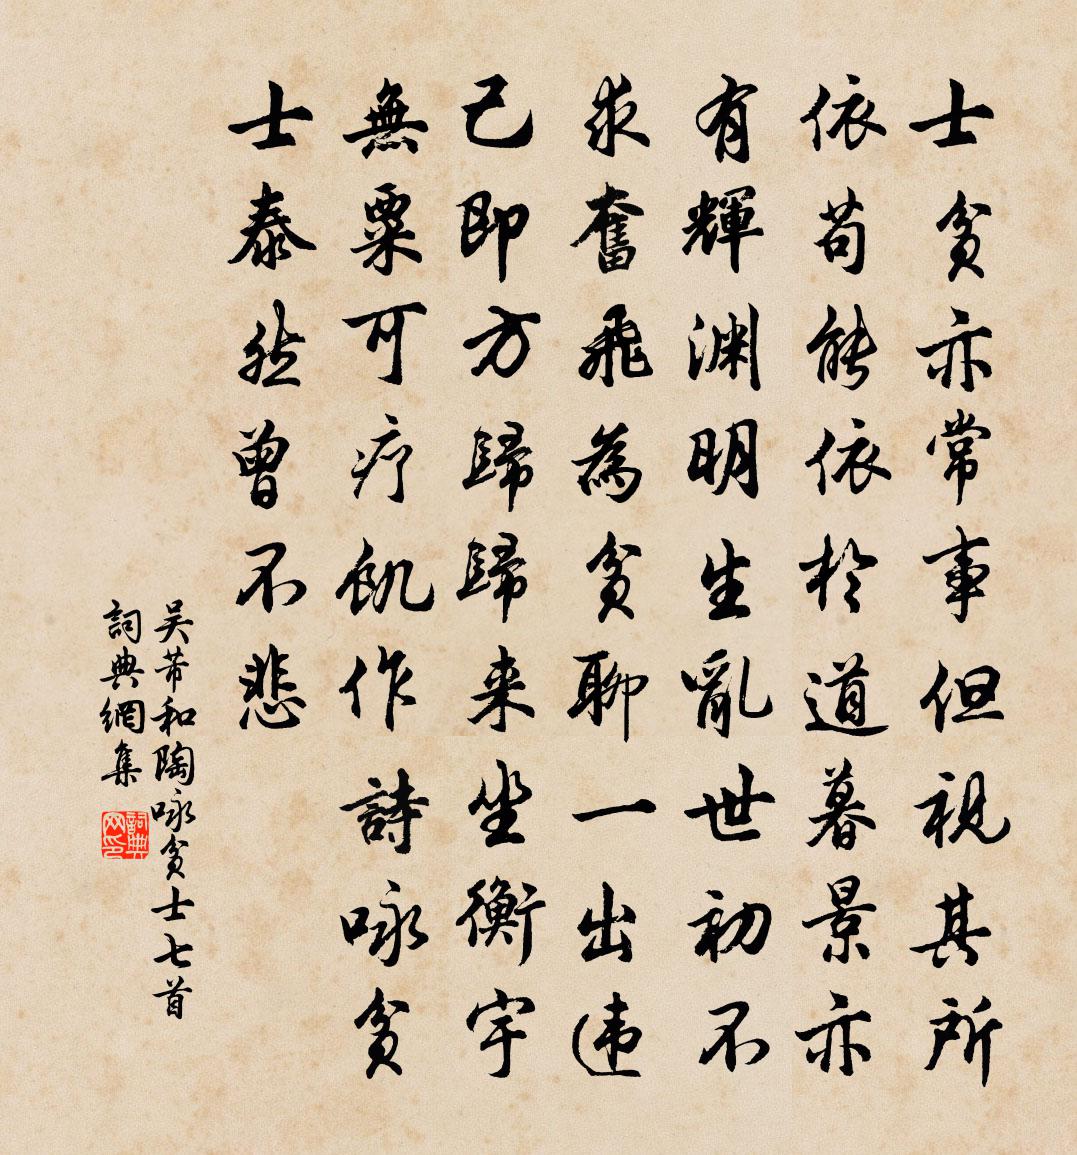 士貧亦常事但視其所
依苟能依於道暮景亦
有輝淵明生亂世初不
求奮飛為貧聊一出違
己即方歸歸来坐衡宇
無粟可疗飢作詩咏貧
士泰然曾不悲
吴芾和陶咏貧士七首
詞典網集
詞典网印